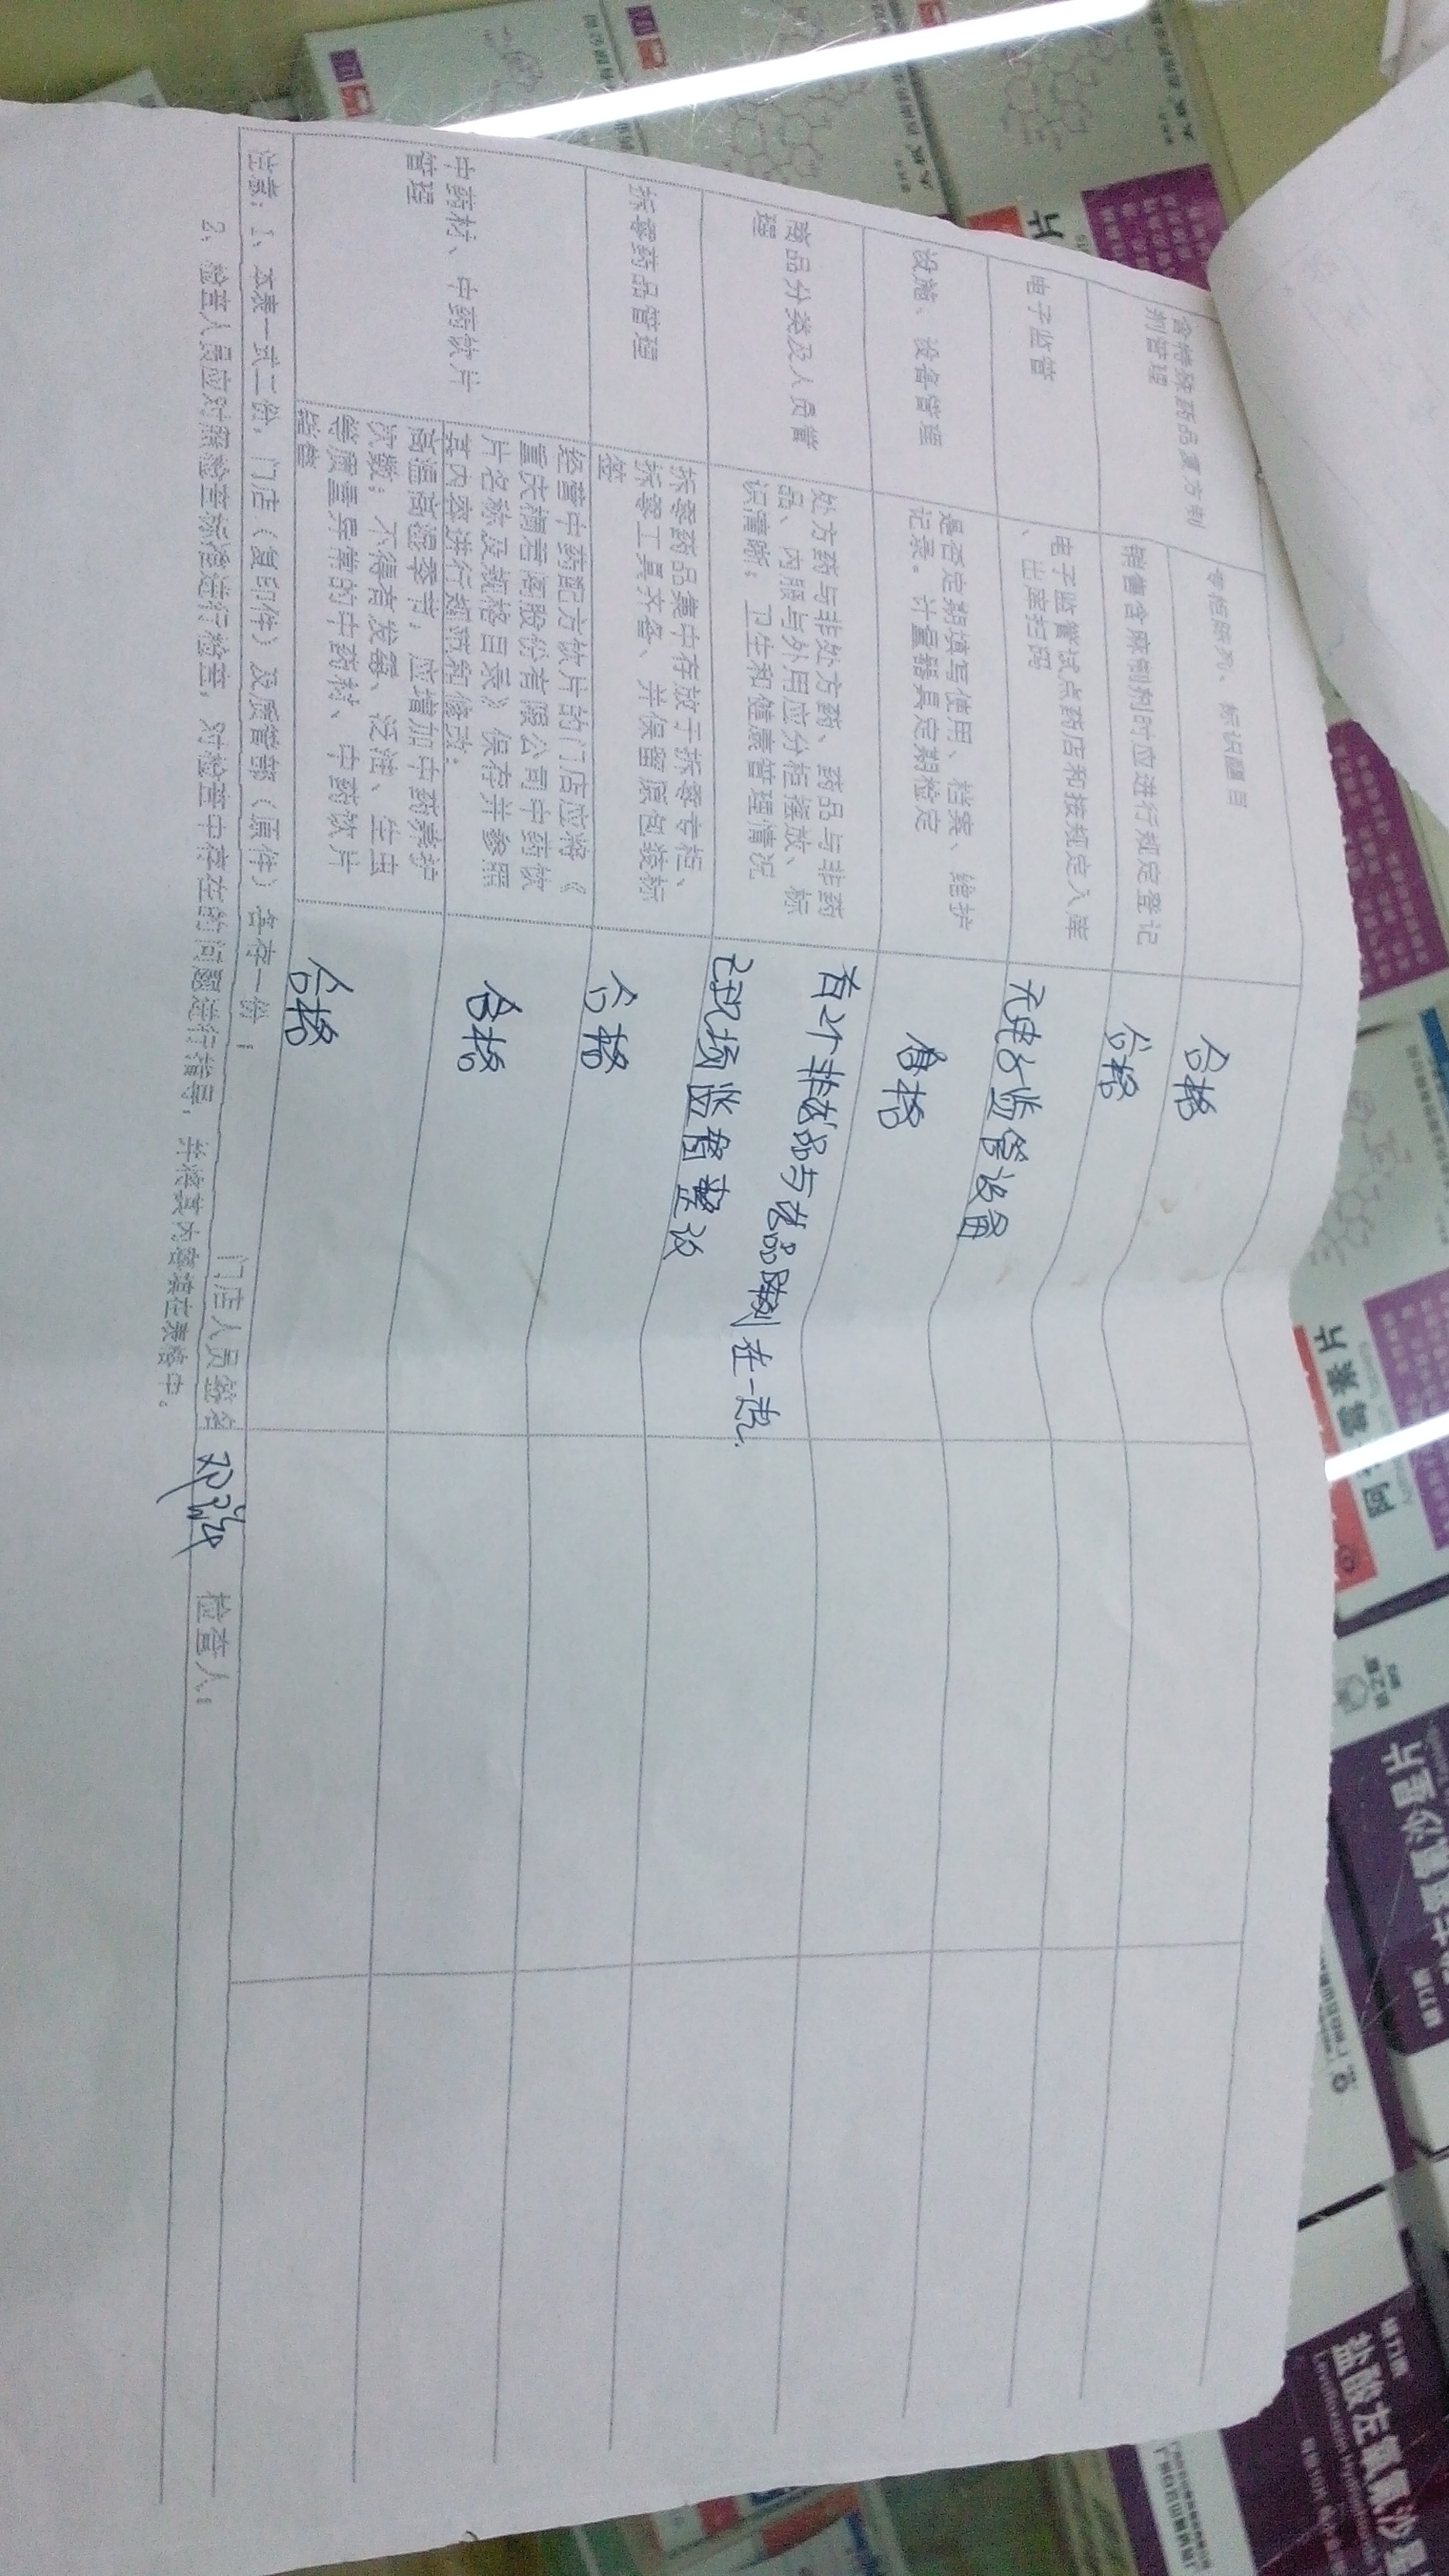 含特殊药品复方制
剂管理
专柜陈列、标识醒目
合格
销售含麻制剂时应进行规定登记
合格
电子监管
电子监管试点药店和按规定入库
、出库扫码
无电子监管设备
设施、设备管理
是否定期填写使用、档案、维护
记录。计量器具定期检定
合格
商品分类及人员管
理
处方药与非处方药、药品与非药
品、内服与外用应分柜摆放、标
识清晰；卫生和健康管理情况
有个非药品与药品陈列在一起
已现场监督整改
拆零药品管理
拆零药品集中存放于拆零专柜、
拆零工具齐备、并保留原包装标
签
合格
中药材、中药饮片
管理
经营中药配方饮片的门店应将《
重庆桐君阁股份有限公司中药饮
片名称及规格目录》保存并参照
其内容进行规范和修改；
合格
高温高湿季节，应增加中药养护
次数；不得有发霉、泛油、生虫
等质量异常的中药材、中药饮片
销售
合格
注意：1、本表一式二份，门店（复印件）及质管部（原件）各存一份；
2、检查人员应对照检查标准进行检查，对检查中存在的问题进行指导，并将其内容填在表格中。
门店人员签名
检查人：
片
阿
素片
盐酸左氧氟沙星